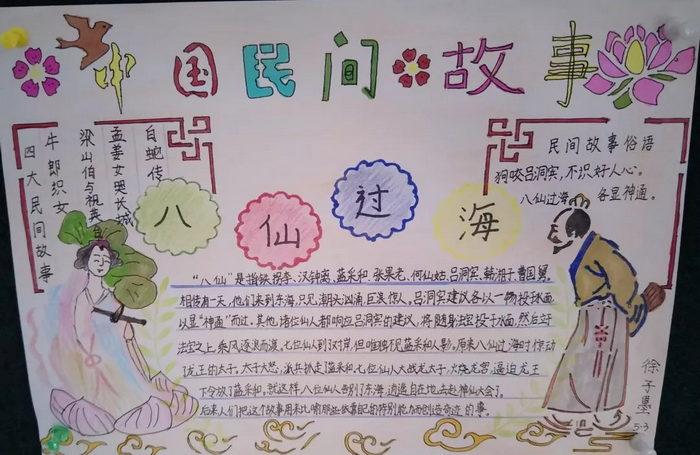 中国民间故事
四大民间故事
牛郎织女
梁山伯与祝英台
孟姜女哭长城
白蛇传
民间故事俗语
狗咬吕洞宾,不识好人心。
八仙过海,各显神通。
八仙过海
"八仙"是指铁拐李、汉钟离、蓝采和、张果老、何仙姑、吕洞宾、韩湘子、曹国舅。
相传有一天,他们来到东海,只见潮头汹涌,巨浪惊人。吕洞宾建议各以一物投于水面,
以显"神通"而过。其他诸位仙人都响应吕洞宾的建议,将随身法宝投于水面,然后立于
法宝之上,乘风逐浪而渡。七位仙人到了对岸,但唯独不见蓝采和人影。原来八仙过海时惊动
龙王的太子,太子大怒,派兵抓走了蓝采和,七位仙人大战龙太子,火烧龙宫,逼迫龙王
下令放了蓝采和。就这样,八位仙人告别了东海,逍遥自在地去赴神仙大会了。
后来人们把这个故事用来比喻那些依靠自己的特别能力而创造奇迹的事。
徐子墨
5.3